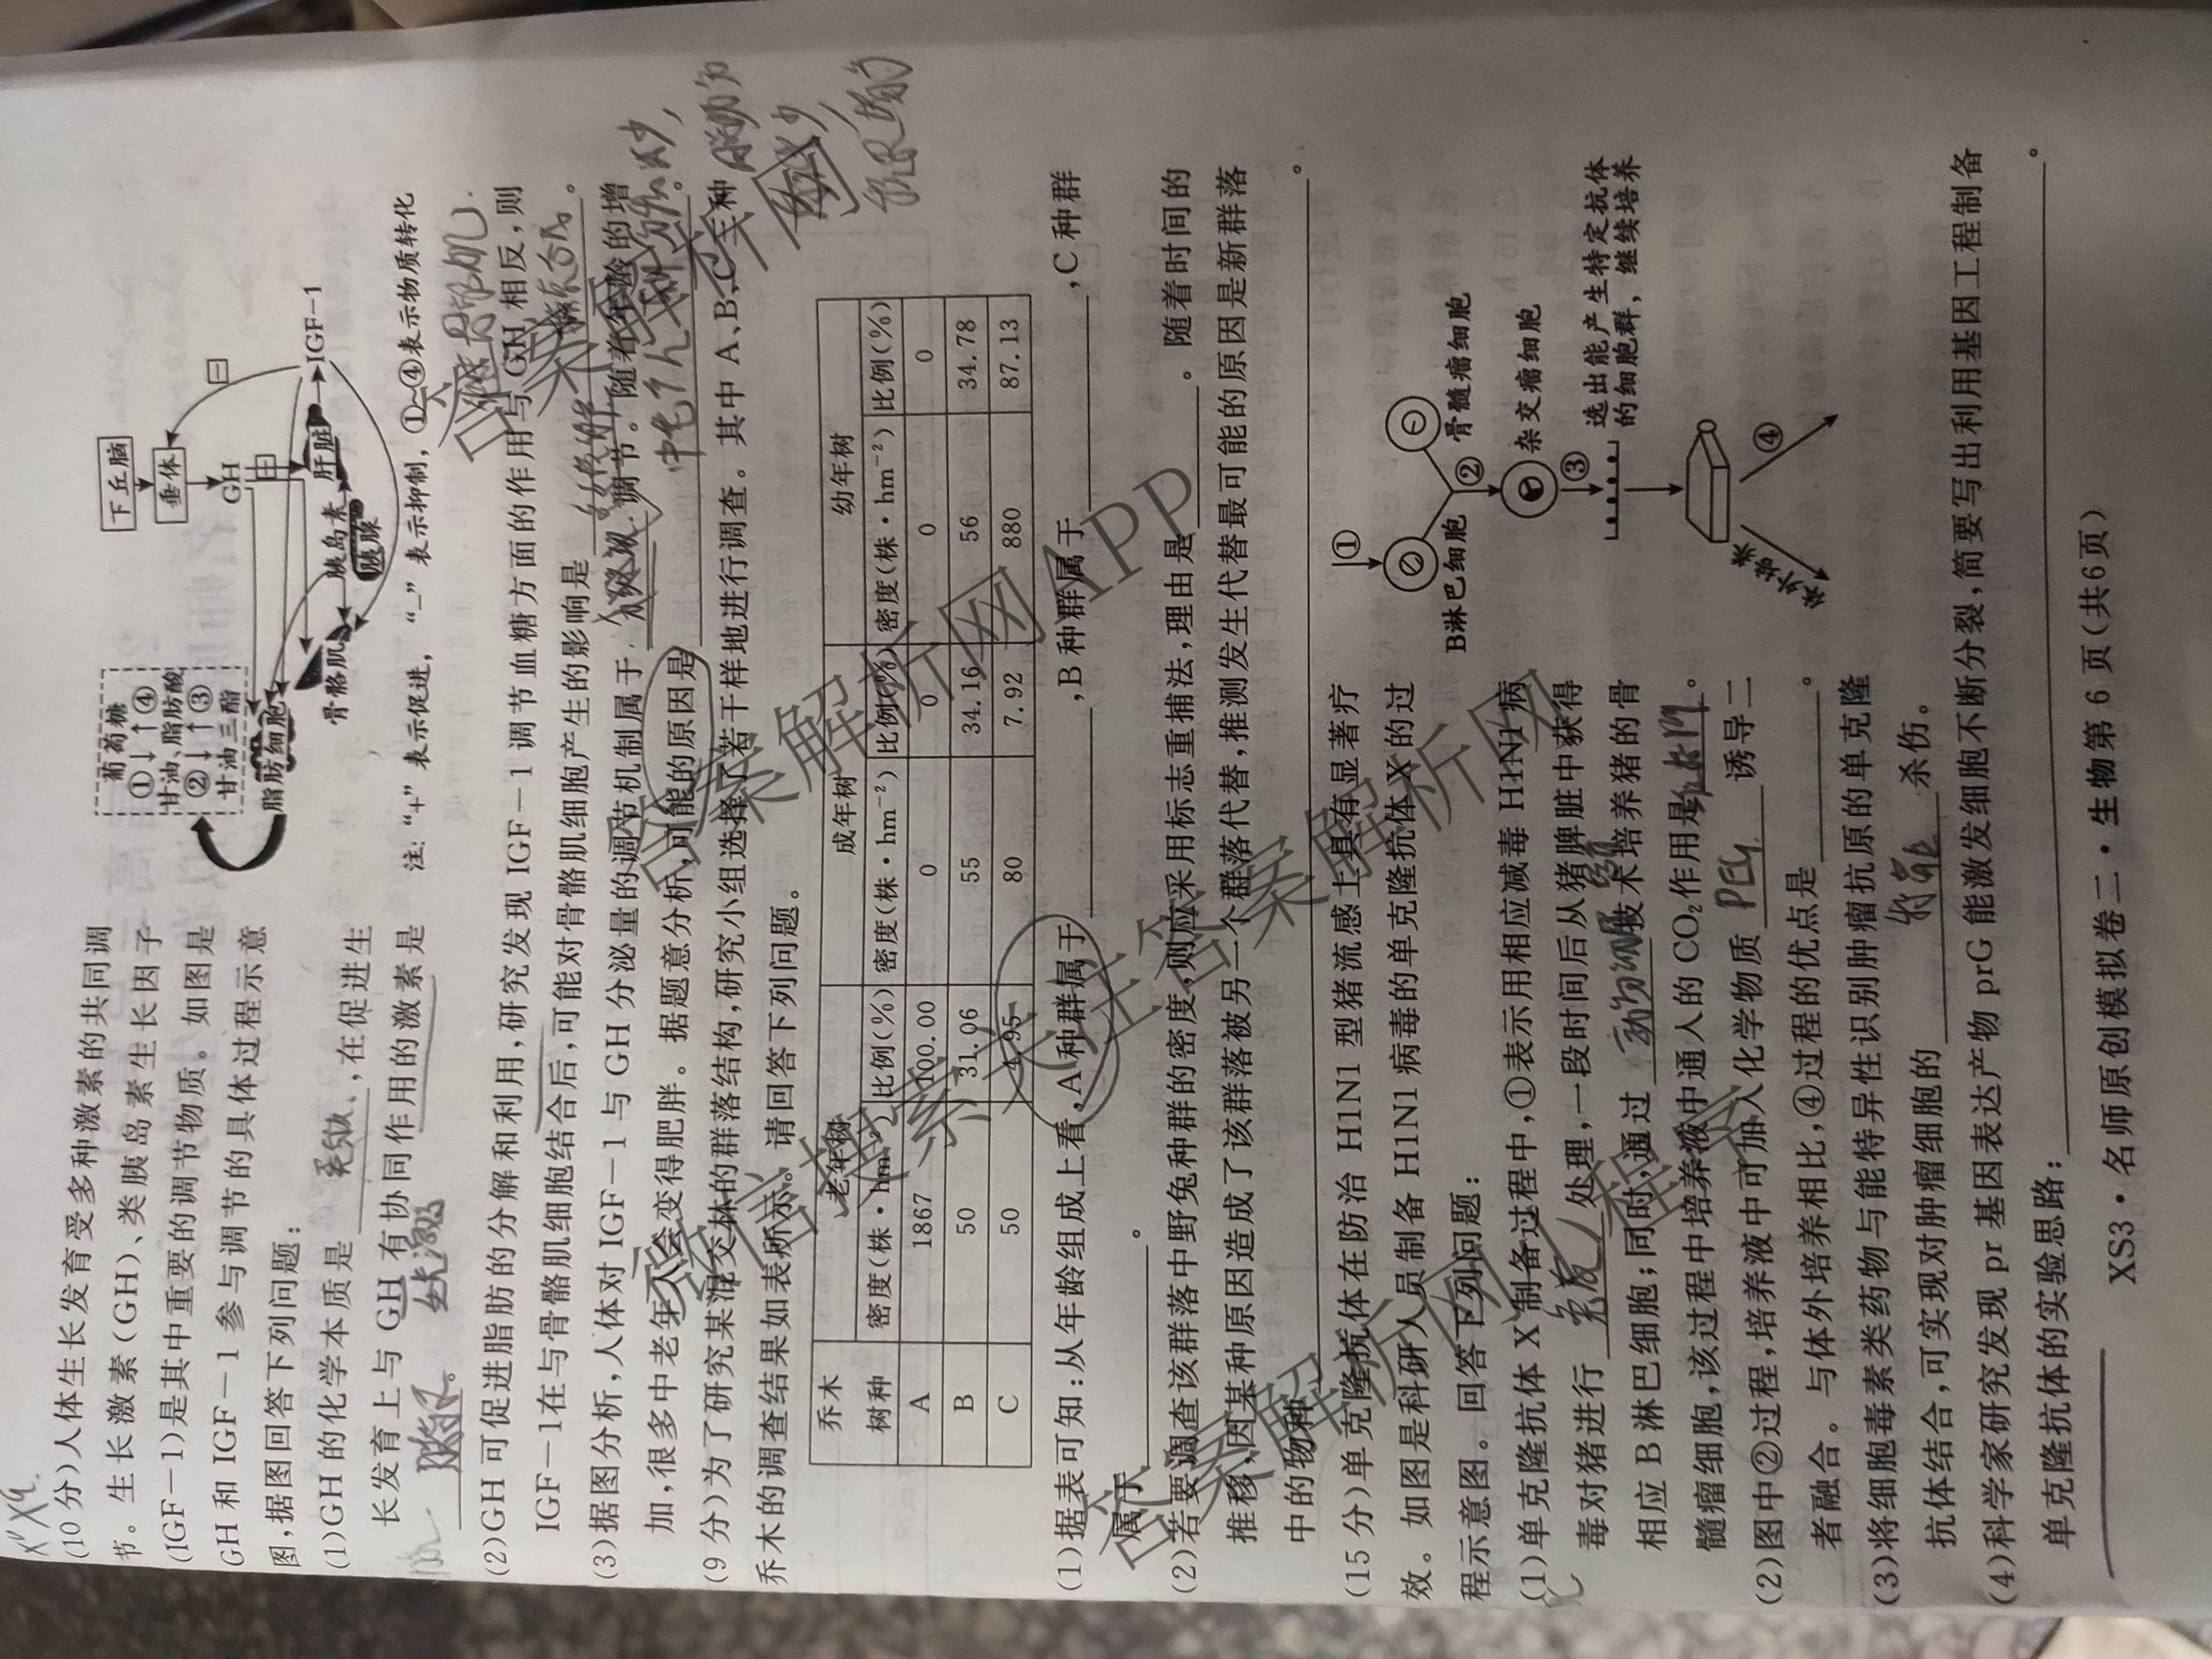 (10分)人体生长发育受多种激素的共同调
节。生长激素(GH)、类胰岛素生长因子
(IGF-1)是其中重要的调节物质。如图是
GH和IGF-1参与调节的具体过程示意
图,据图回答下列问题:
(1)GH的化学本质是 ,在促进生
长发育上与GH有协同作用的激素是
。
下丘脑
垂体
GH
IGF-1
肝脏
胰岛素
胰腺
骨骼肌
葡萄糖
①↓↑④
甘油、脂肪酸
②↓↑③
甘油三酯
脂肪细胞
注:“+”表示促进,“-”表示抑制,①~④表示物质转化
(2)GH可促进脂肪的分解和利用,研究发现IGF-1调节血糖方面的作用与GH相反,则
IGF-1在与骨骼肌细胞结合后,可能对骨骼肌细胞产生的影响是 。
(3)据图分析,人体对IGF-1与GH分泌量的调节机制属于 调节。随着年龄的增
加,很多中老年人会变得肥胖。据题意分析,可能的原因是 。
(9分)为了研究某混交林的群落结构,研究小组选择了若干样地进行调查。其中A、B、C三种
乔木的调查结果如表所示。请回答下列问题。
乔木树种 老年树 成年树 幼年树
密度(株·hm⁻²) 比例(%) 密度(株·hm⁻²) 比例(%) 密度(株·hm⁻²) 比例(%)
A 1867 100.00 0 0 0 0
B 50 31.06 55 34.16 56 34.78
C 50 4.95 80 7.92 880 87.13
(1)据表可知:从年龄组成上看,A种群属于 ,B种群属于 ,C种群
属于 。
(2)若要调查该群落中野兔种群的密度,则应采用标志重捕法,理由是 。随着时间的
推移,因某种原因造成了该群落被另一个群落代替,推测发生代替最可能的原因是新群落
中的物种 。
(15分)单克隆抗体在防治H1N1型猪流感上具有显著疗
效。如图是科研人员制备H1N1病毒的单克隆抗体X的过
程示意图。回答下列问题:
(1)单克隆抗体X制备过程中,①表示用相应减毒H1N1病
毒对猪进行 免疫 处理,一段时间后从猪脾脏中获得
相应B淋巴细胞;同时,通过 动物细胞 技术培养猪的骨
髓瘤细胞,该过程中培养液中通入的CO₂作用是 。
(2)图中②过程,培养液中可加入化学物质 PEG 诱导二
者融合。与体外培养相比,④过程的优点是 。
(3)将细胞毒素类药物与能特异性识别肿瘤抗原的单克隆
抗体结合,可实现对肿瘤细胞的 杀伤。
(4)科学家研究发现pr基因表达产物prG能激发细胞不断分裂,简要写出利用基因工程制备
单克隆抗体的实验思路: 。
①
B淋巴细胞
骨髓瘤细胞
②
杂交瘤细胞
③
选出能产生特定抗体
的细胞群,继续培养
体外培养
④
XS3·名师原创模拟卷二·生物第6页(共6页)